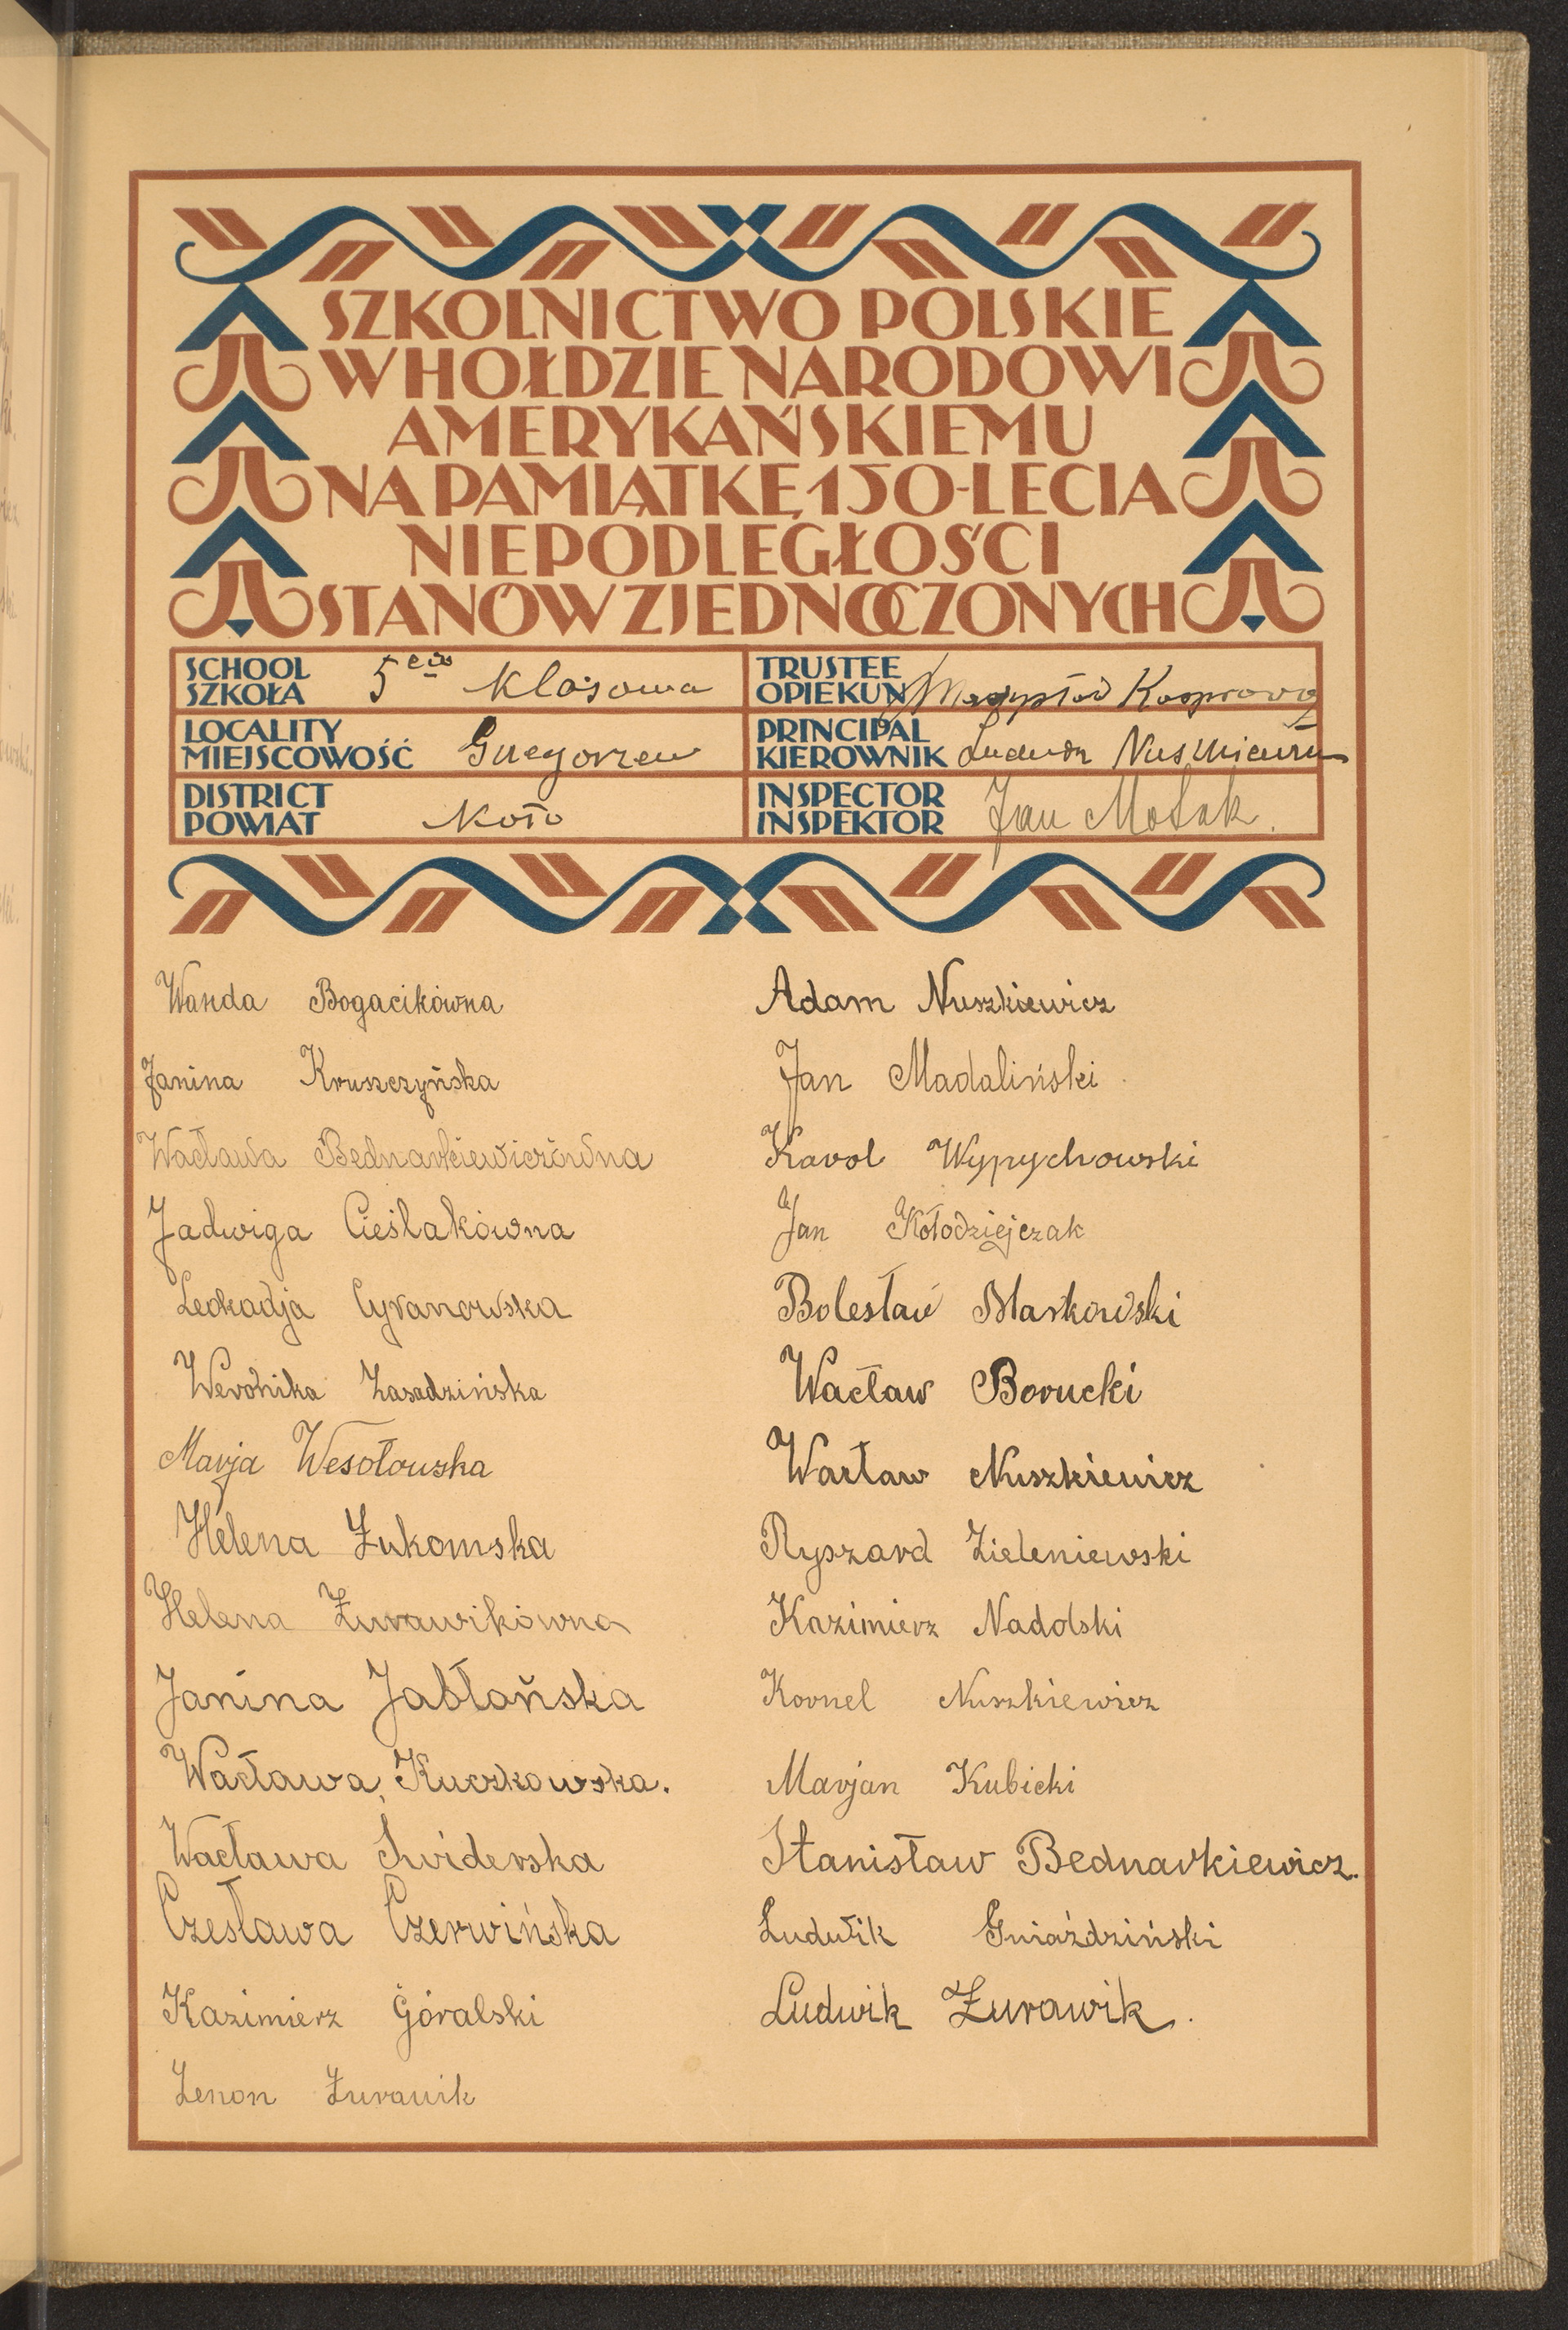 SZKOLNICTWO POLSKIE
W HOŁDZIE NARODOWI
AMERYKAŃSKIEMU
NA PAMIĄTKĘ 150-LECIA
NIEPODLEGŁOŚCI
STANÓW ZJEDNOCZONYCH
SCHOOL
SZKOŁA
5cio klasowa
TRUSTEE
OPIEKUN
LOCALITY
MIEJSCOWOŚĆ
Grzegorzew
PRINCIPAL
KIEROWNIK
DISTRICT
POWIAT
Koło
INSPECTOR
INSPEKTOR
Jan
Wanda Bogacikówna
Janina Kruszczyńska
Wacława Bednarkiewiczówna
Jadwiga Cieślakówna
Leokadja Cyranowska
Weronika Zasadzińska
Marja Wesołowska
Helena Łukomska
Helena Żurawikówna
Janina Jabłońska
Wacława Kuczkowska.
Wacława Świderska
Czesława Czerwińska
Kazimierz Góralski
Zenon Żurawik
Adam Nuszkiewicz
Jan Madaliński
Karol Wypychowski
Jan Kołodziejczak
Bolesław Markowski
Wacław Borucki
Wacław Nuszkiewicz
Ryszard Zieleniewski
Kazimierz Nadolski
Kornel Nuszkiewicz
Marjan Kubicki
Stanisław Bednarkiewicz.
Ludwik Gniaździński
Ludwik Żurawik.